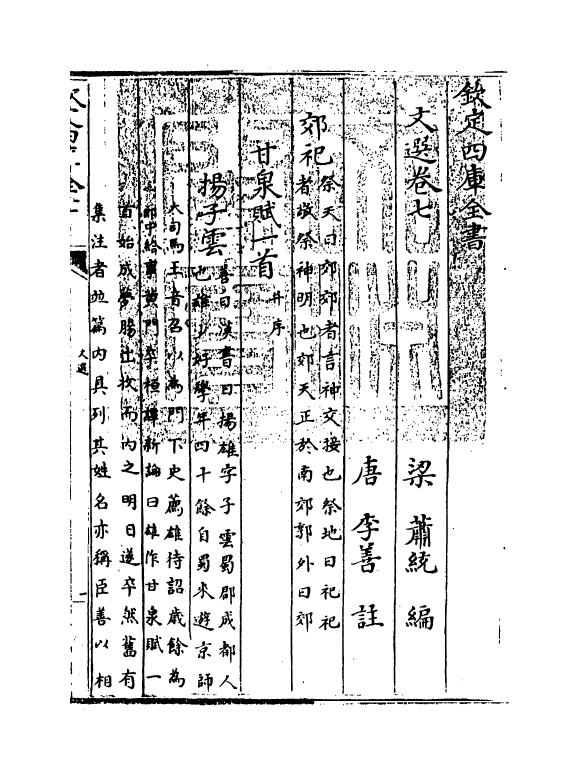 欽定四庫全書
文選卷七
梁 蕭統 編
唐 李善 註
郊祀
祭天曰郊郊者言神交接也祭地曰祀祀
者敬祭神明也郊天正於南郊郭外曰郊
甘泉賦一首
并序
揚子雲
善曰漢書曰揚雄字子雲蜀郡成都人
也雄少好學年四十餘自蜀來遊京師
大司馬王音召以為門下史薦雄待詔歲餘為
郎中給事黃門卒桓譚新論曰雄作甘泉賦一
首始成夢腸出收而內之明日遂卒然舊有
集注者並篇內具列其姓名亦稱臣善以相
文選
一